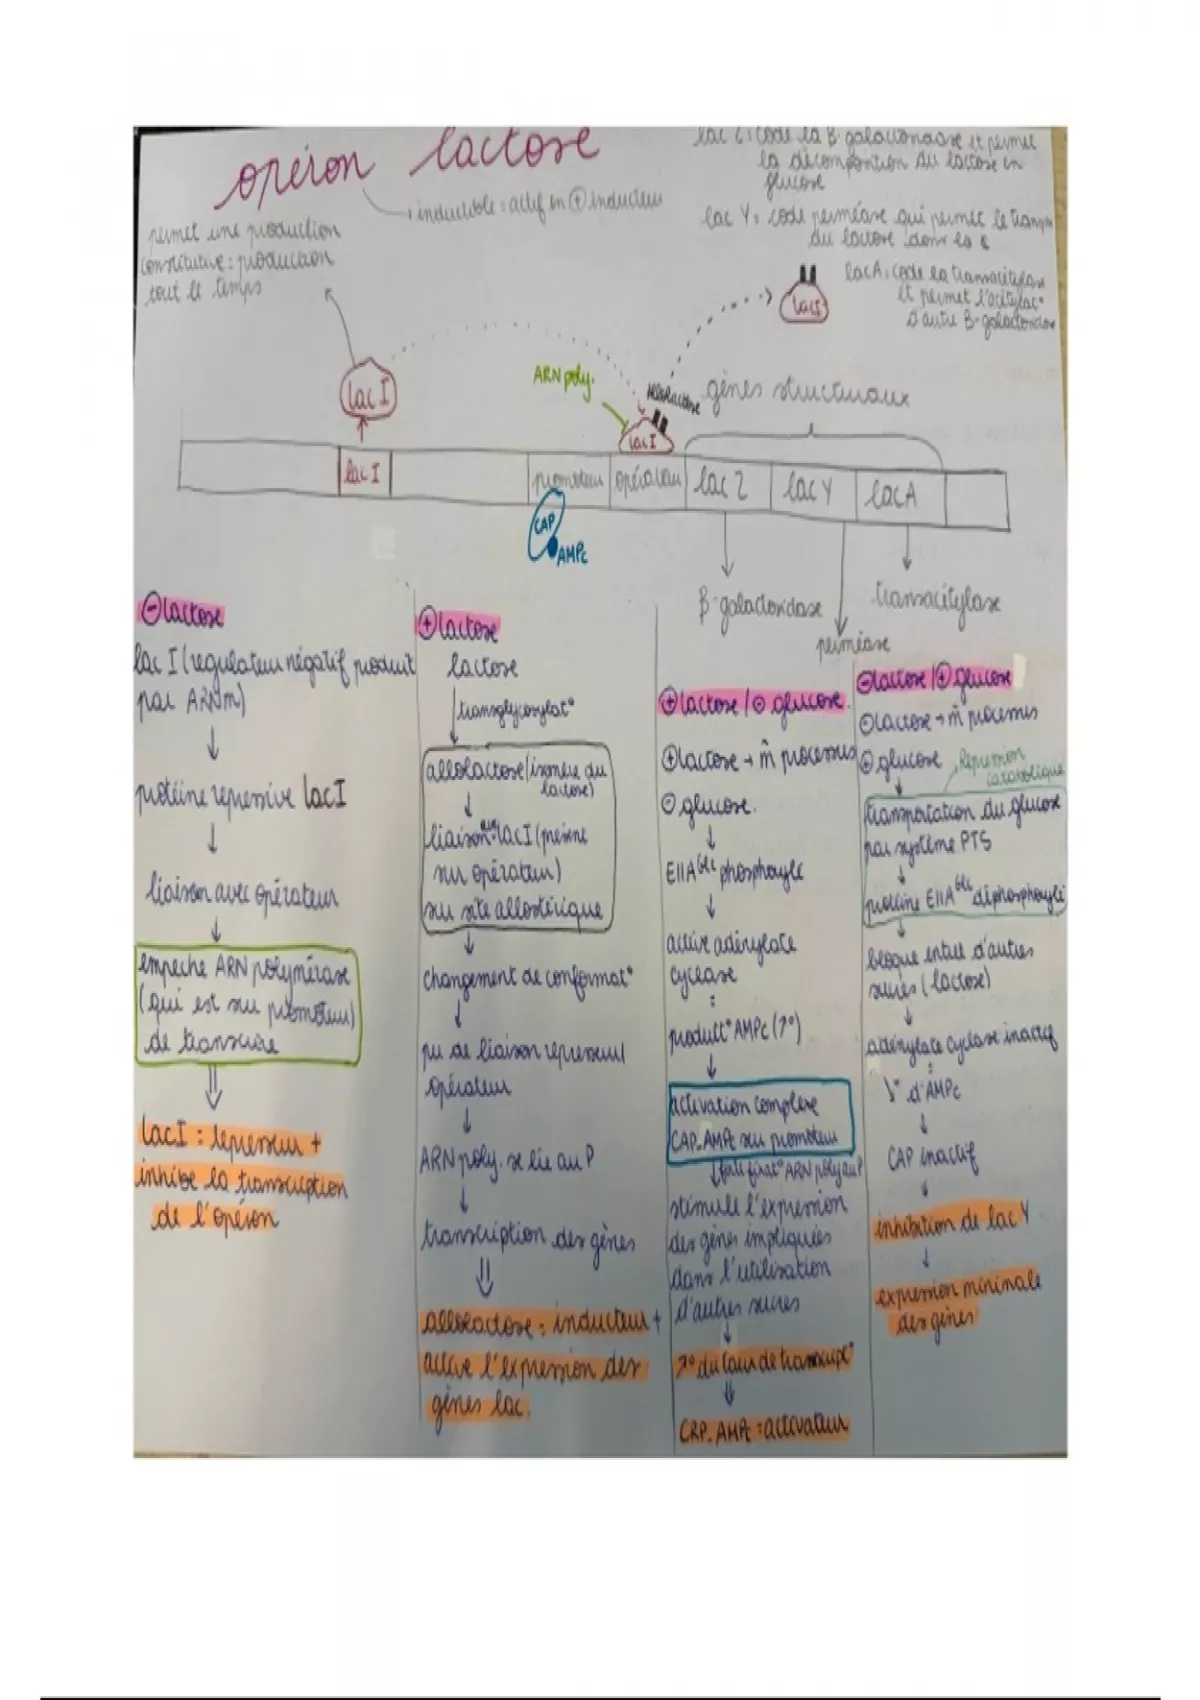 opéron lactose
→ inductible = actif en ⊕ inducteur
lac Z: code la β-galactosidase et permet
la décomposition du lactose en
glucose
lac Y = code perméase qui permet le transp
du lactose dans la
lacA: code la transacétylase
et permet l'acétylat°
d'autre β-galactosidase
permet une production
constitutive = production
tout le temps
lac I
lacI
ARN poly.
Allolactose
gènes structuraux
lacI
lac I
promoteur
opérateur
lac Z
lac Y
lacA
CAP
AMPc
β-galactosidase
perméase
transacétylase
⊖ lactose
lac I (régulateur négatif produit
par ARNm)
↓
protéine repressive lacI
↓
liaison avec opérateur
↓
empêche ARN polymérase
(qui est su promoteur)
de transcrire
⇓
lacI = represseur +
inhibe la transcription
de l'opéron
⊕ lactose
lactose
↓ transglycosylat°
allolactose (isomère du
lactose)
↓
liaison avec lacI (présent
su opérateur)
su site allostérique
↓
changement de conformat°
↓
pu de liaison represseur/
opérateur
↓
ARN poly. se lie au P
↓
transcription des gènes
⇓
allolactose = inducteur +
active l'expression des
gènes lac.
⊕ lactose / ⊖ glucose.
⊕ lactose → m̂ processus
⊖ glucose.
↓
EIIA glc phosphorylé
↓
active adénylate
cyclase
=
product° AMPc (↗°)
↓
activation complexe
CAP-AMPc su promoteur
↓ forte fixat° ARN poly au P
stimule l'expression
des gènes impliqués
dans l'utilisation
d'autres sucres
↓
↗° du taux de transcript°
⇓
CRP-AMPc = activateur
⊖ lactose / ⊕ glucose
⊖ lactose → m̂ processus
⊕ glucose
Répression
catabolique
↓
transportation du glucose
par système PTS
↓
protéine EIIA glc déphosphorylé
↓
bloque entrée d'autres
sucres (lactose)
↓
adénylate cyclase inactif
=
↘° d'AMPc
↓
CAP inactif
↓
inhibition de lac Y
↓
expression minimale
des gènes